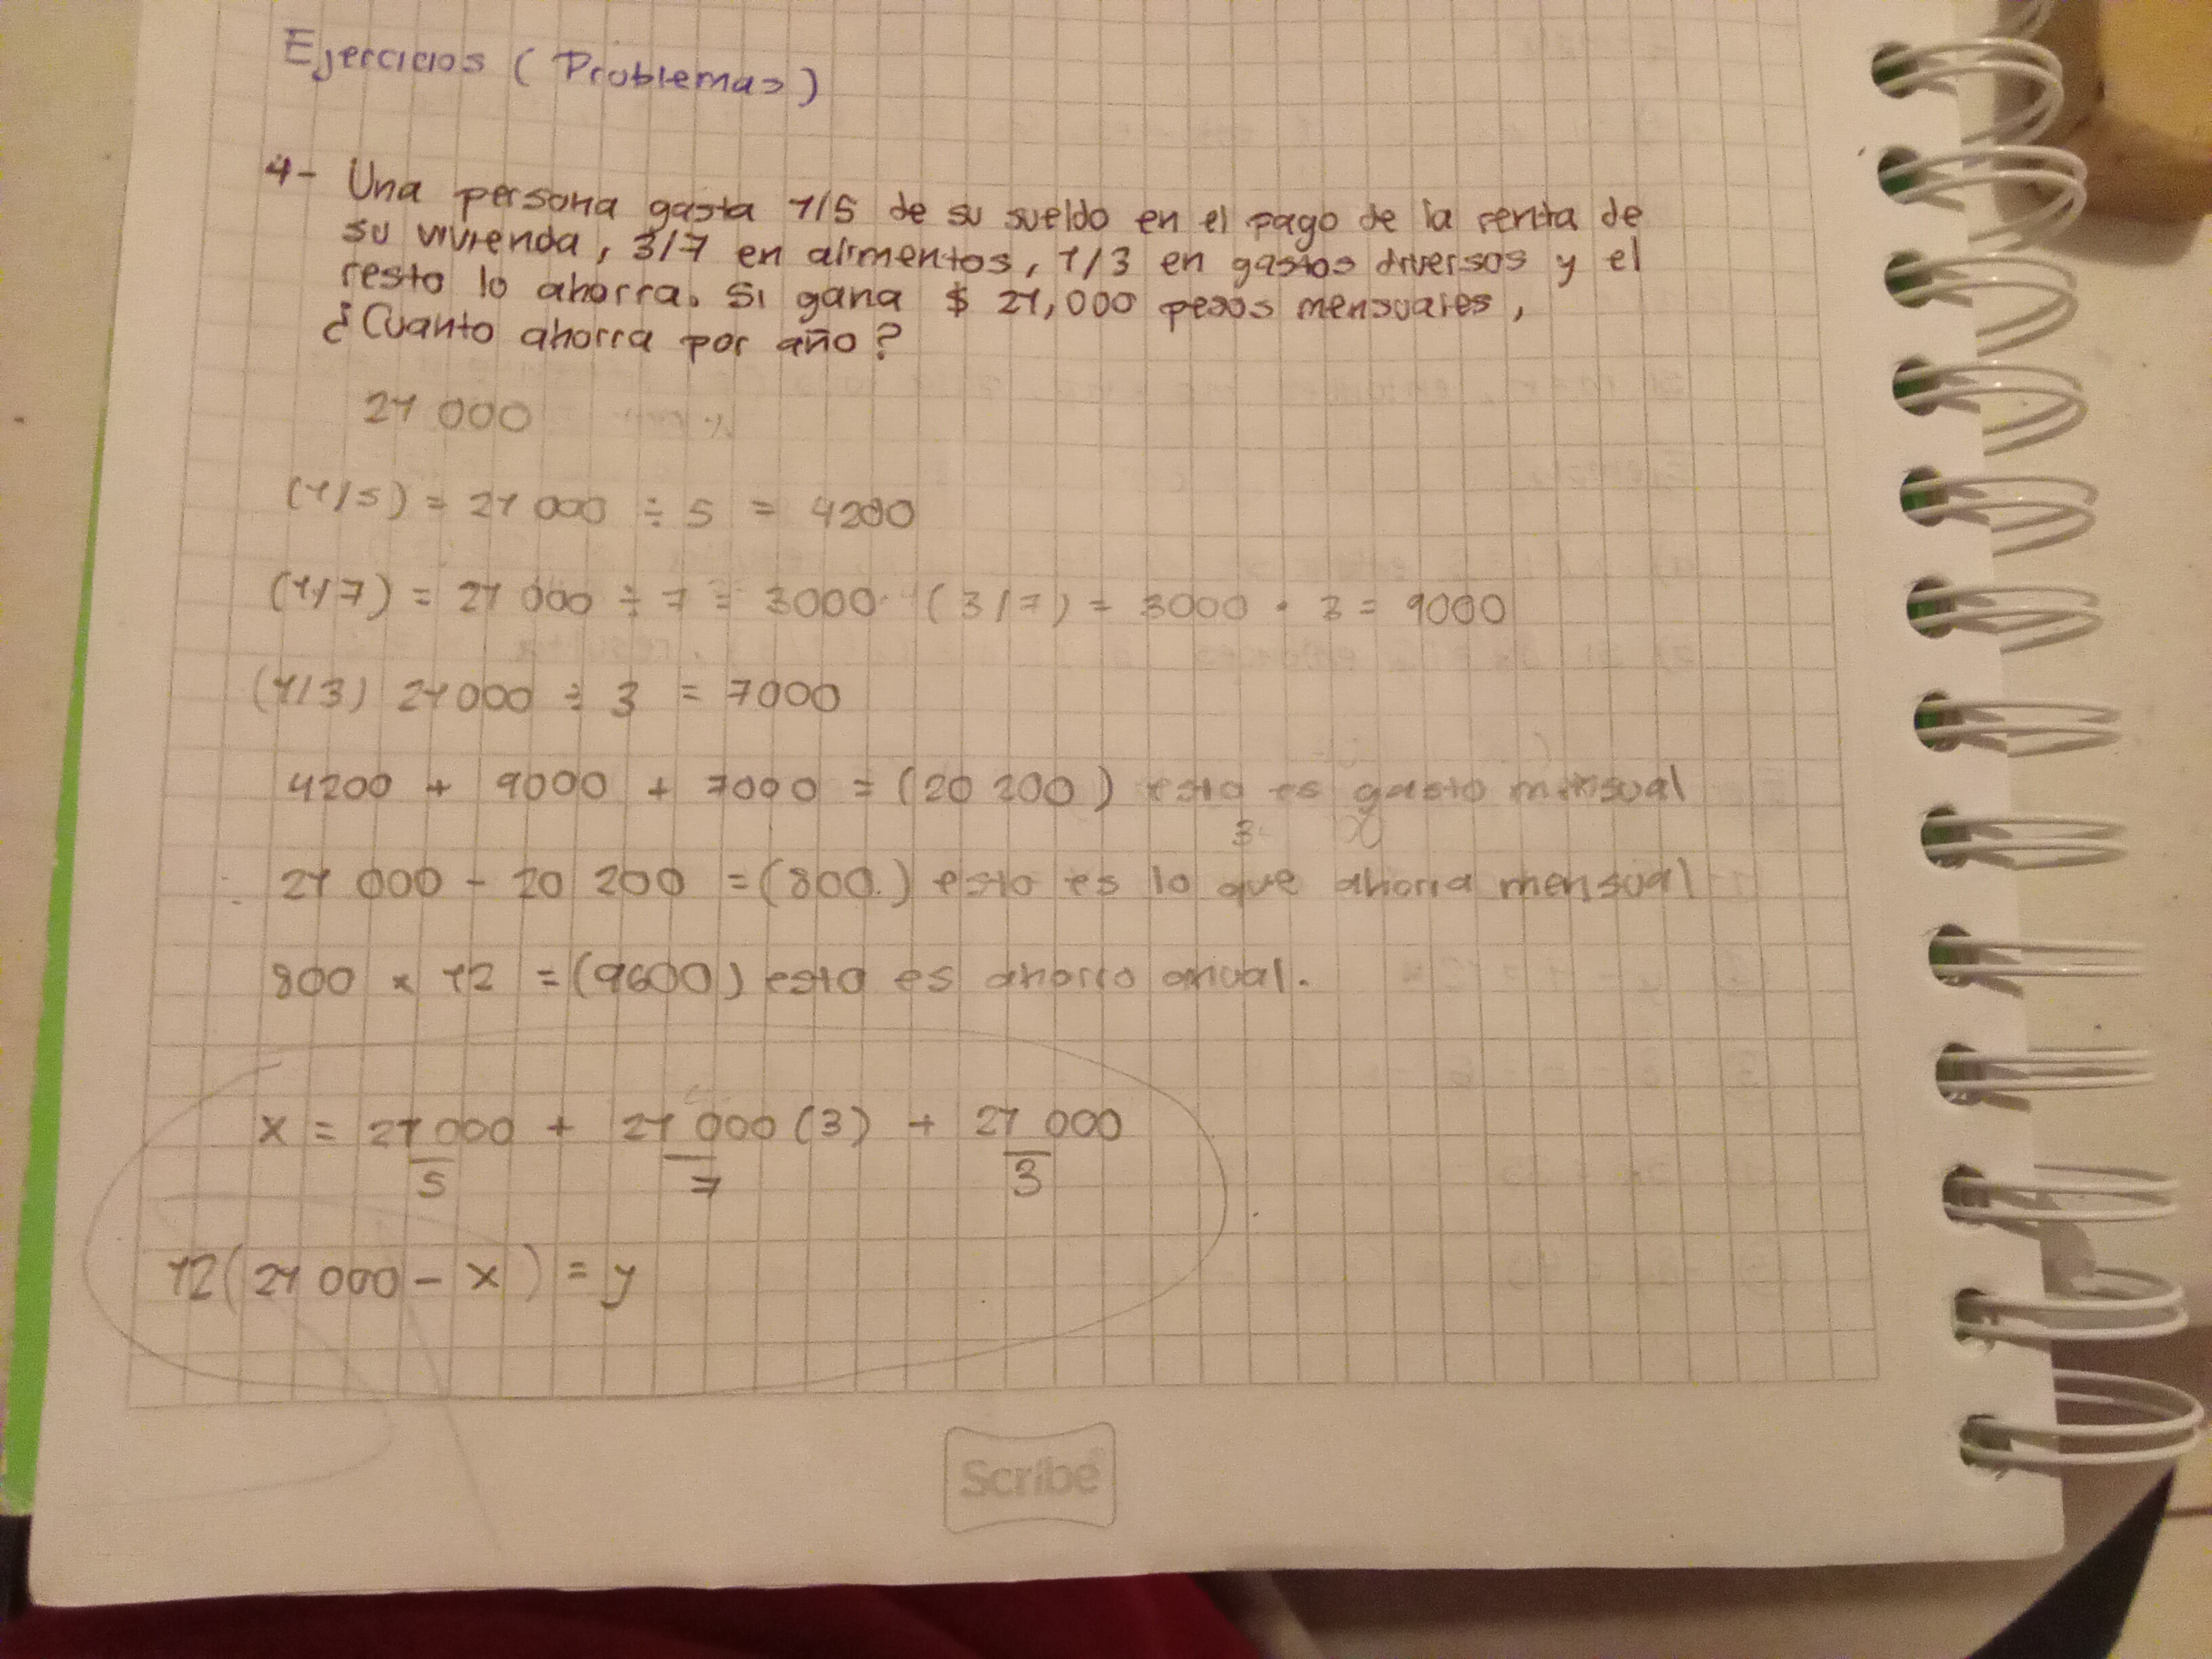 Ejercicios ( Problemas )
4- Una persona gasta 1/5 de su sueldo en el pago de la renta de
su vivienda, 3/7 en alimentos, 1/3 en gastos diversos y el
resto lo ahorra. Si gana $ 21,000 pesos mensuales,
¿Cuanto ahorra por año?
21 000
(1/5) = 21 000 ÷ 5 = 4200
(1/7) = 21 000 ÷ 7 = 3000 (3/7) = 3000 · 3 = 9000
(1/3) 21000 ÷ 3 = 7000
4200 + 9000 + 7000 = (20 200) esto es gasto mensual
21 000 - 20 200 = (800.) esto es lo que ahorra mensual
800 x 12 = (9600) esto es ahorro anual.
x = 21 000 + 21 000 (3) + 21 000
5 7 3
12(21 000 - x) = y
Scribe